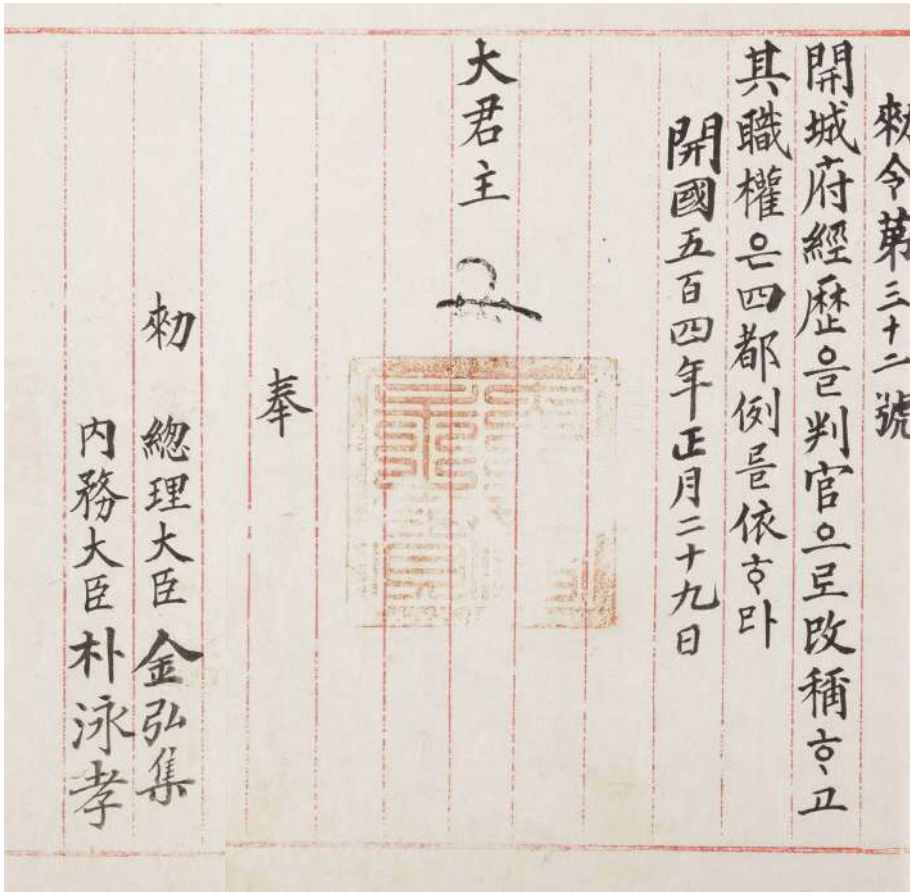 勅令第三十二號
開城府經歷은判官으로改稱ᄒᆞ고
其職權은四都例를依ᄒᆞ라
開國五百四年正月二十九日
大君主
奉
勅 總理大臣 金弘集
內務大臣 朴泳孝